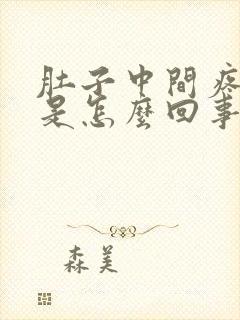 肚子中間疼
是怎麼回事
森美